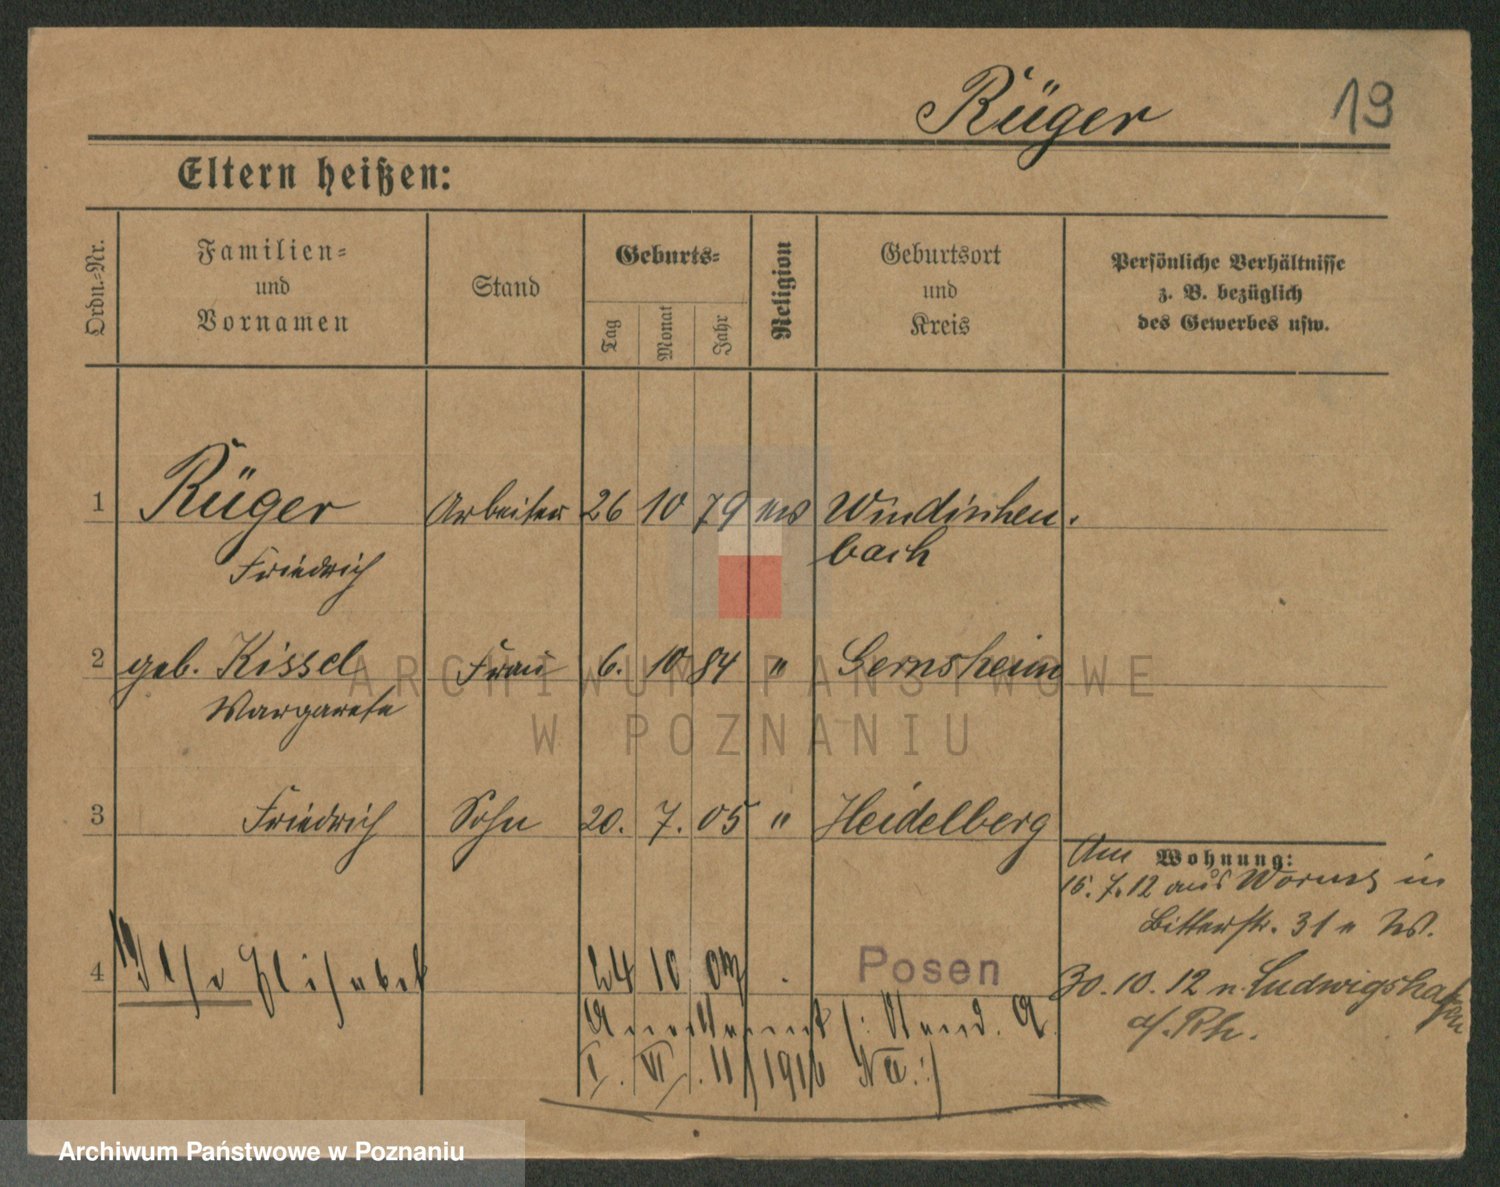 Rüger 19
Eltern heißen:
Ordn.-Nr.
Familien=
und
Vornamen
Stand
Geburts=
Tag
Monat
Jahr
Religion
Geburtsort
und
Kreis
Persönliche Verhältnisse
z. B. bezüglich
des Gewerbes usw.
1 Rüger Arbeiter 26 10 79 Windischen
Friedrich bach
2 geb. Kissel Frau 6. 10 84 " Gernsheim
Margarete
3 Friedrich Sohn 20. 7. 05 " Heidelberg
Am Wohnung:
15. 7. 12 aus Worms in
Bitterstr. 31
4 Ilse Elisabeth 24 10 Posen
30. 10. 12 n. Ludwigshafen
a/. Rh.
Anerkannt /: Stand. A.
I. VI. 11/1916
ARCHIWUM PAŃSTWOWE
W POZNANIU
Archiwum Państwowe w Poznaniu